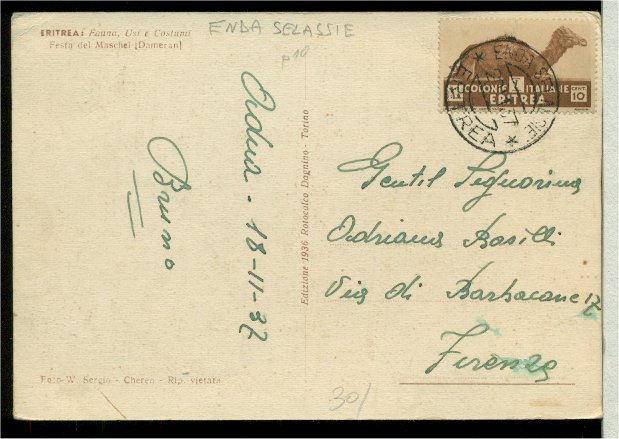 ERITREA: Fauna, Usi e Costumi
Festa del Maschel [Dameran]
ENDA SELASSIE
COLONIE ITALIANE
ERITREA
CENT. 10
ENDA SELASSIE
ERITREA
Adua - 18-11-37
Bruno
Edizione 1936 Rotocalco Dagnino - Torino
Gentil Signorina
Adriana Bosilli
Via di Barbacane 17
Firenze
Foto W. Sergio - Cheren - Rip. vietata
30/